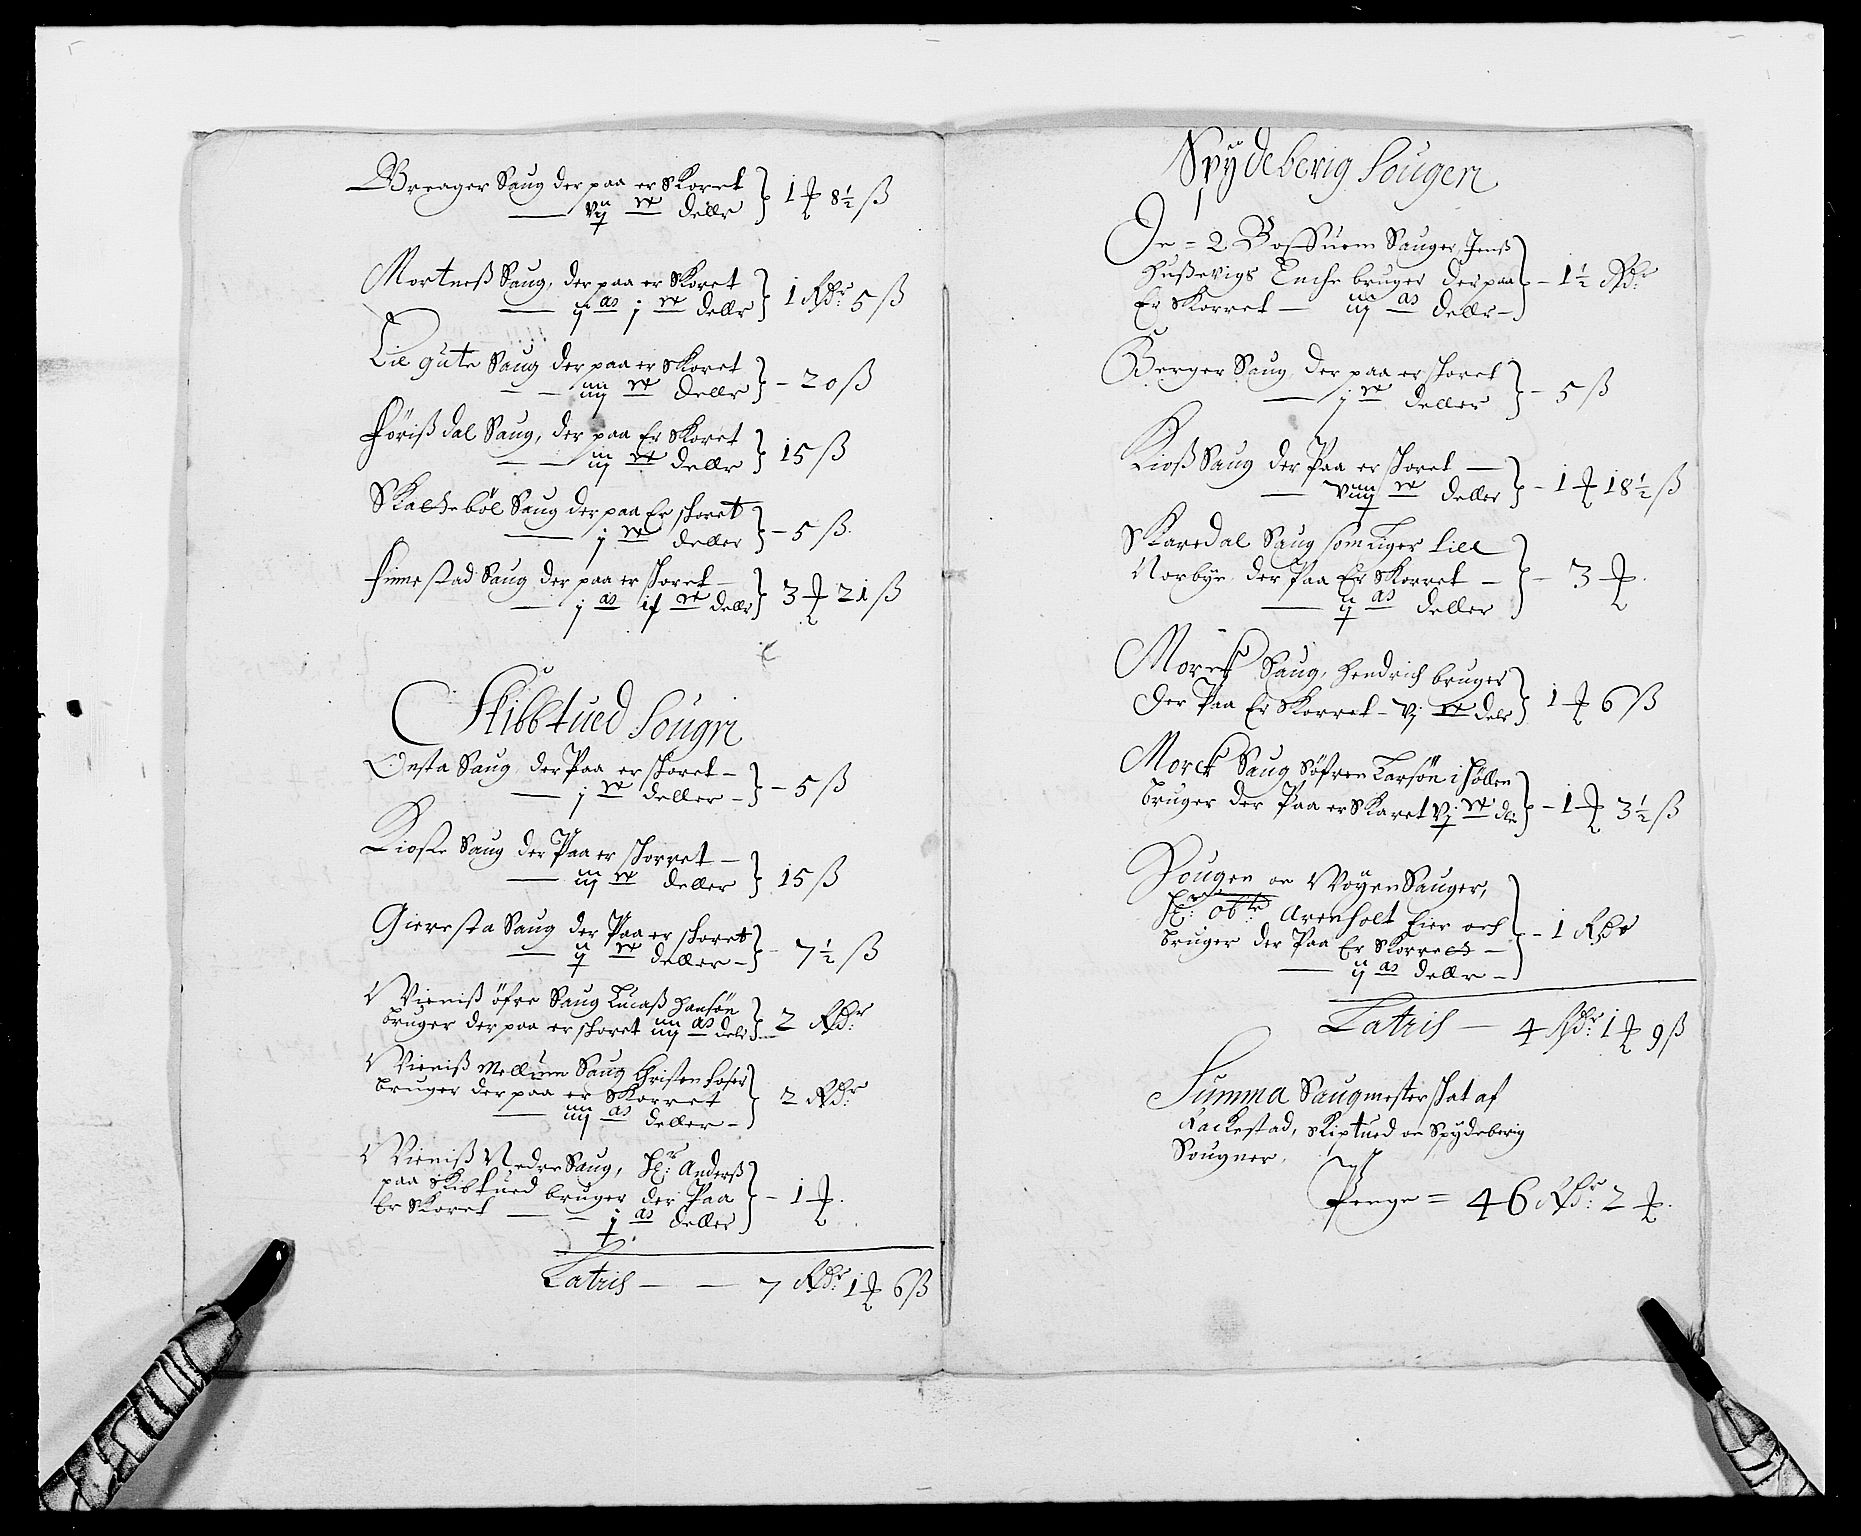 Breager Saug der paa er Skorret
— vij rt dellr } 1 ₰ 8½ ß
Mortneß Saug, der paa er Skoret
— ij as j rt dellr } 1 Rdr: 5 ß
Lie gute Saug der paa er Skoret
— — iiij rt dellr } – 20 ß
Föriß dal Saug, der paa Er Skoret
— — iij rt dellr } 15 ß
böl Saug der paa Er skoret
— j rt deller } – 5 ß.
Finnestad Saug der paa er skoret –
— j as rt dellr } 3 ₰ 21 ß
Skibbtued Sougn
Onsta Saug der Paa er skoret –
— j rt deller – } – 5 ß
Saug der Paa er skorret –
— iij rt deller } 15 ß
Gieresta Saug der Paa er skoret
— rt deller – } – 7½ ß
Vieniß öfre Saug Lucaß Hansön
bruger der paa er skoret iiij as delr } 2 Rdr:
Vieniß Mellum Saug Christen
bruger der paa er Skorret
— iiij as deller – } 2 Rdr:
Vieniß Nedre Saug, Hr: Anderß
paa Skibtued bruger der Paa
Er Skoret — – as deller } – 1 ₰.
Latris — — 7 Rdr: 1 ₰ 6 ß
Spydeberig Sougen
De = 2 Bossuem Sauger, Jenß
Hußevigs Enche bruger der paa
Er Skorret — iij as dellr – } – 1½ Rdr:
Berger Saug, der paa er skoret
— j rt deller } – 5 ß
Kioß Saug der Paa er skoret —
— rt deller } – 1 ₰ 18½ ß
Skaredal Saug som liger till
Norbye der Paa Er Skorret –
— ij as deller } – 3 ₰.
Morck Saug, Hendrich bruger
der Paa Er Skorret – vj rt delr } 1 ₰ 6 ß
Morck Saug Söfren Larsön i
bruger der Paa er Skaret vj rt } – 1 ₰ 3½ ß
Hougen oc Woyen Sauger,
Hr: Obte Arenholt Eier och
bruger der Paa Er Skorret –
— ij as dellr – } – 1 Rdr
Latris — 4 Rdr: 1 ₰ 9 ß
Summa Saugmester skat af
Rackestad, Skiptued oc Spydeberig
Sougner.
Penge = 46 Rdr: 2 ₰.